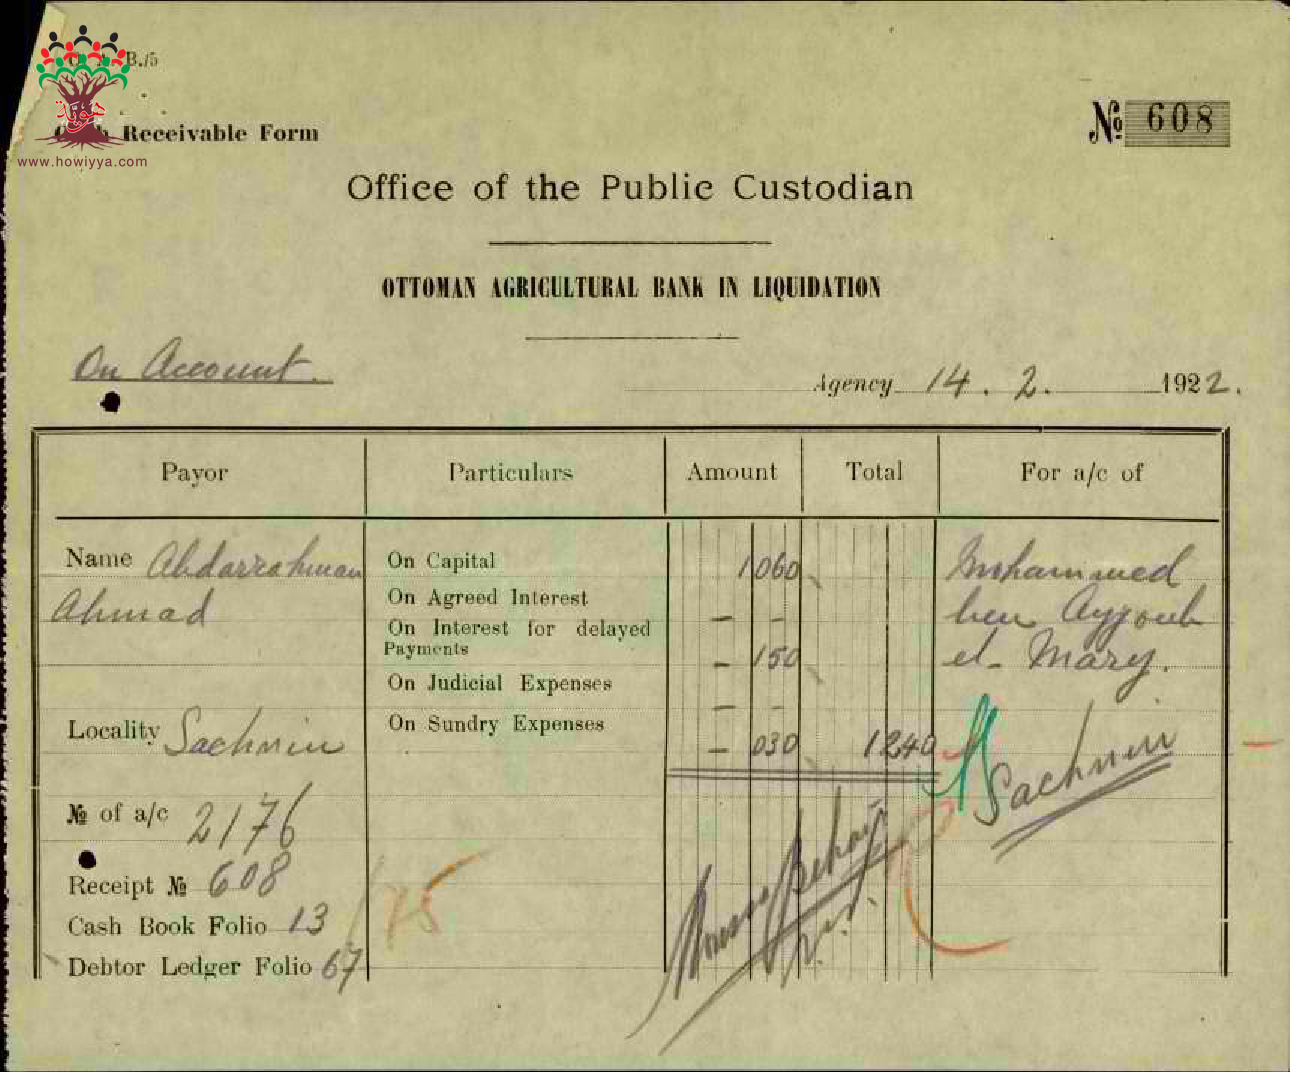 B./5
Receivable Form
www.howiyya.com
№ 608
Office of the Public Custodian
OTTOMAN AGRICULTURAL BANK IN LIQUIDATION
On Account.
Agency 14. 2. 1922.
Payor Particulars Amount Total For a/c of
Name Abdarrahman On Capital 1 060 Mohammed
Ahmad On Agreed Interest - - ben Ayyoub
On Interest for delayed
Payments - 150 el- Mary.
On Judicial Expenses - -
Locality Sachnin On Sundry Expenses - 030 1240 Sachnin
№ of a/c 2176
Receipt № 608
Cash Book Folio 13
75
Debtor Ledger Folio 67